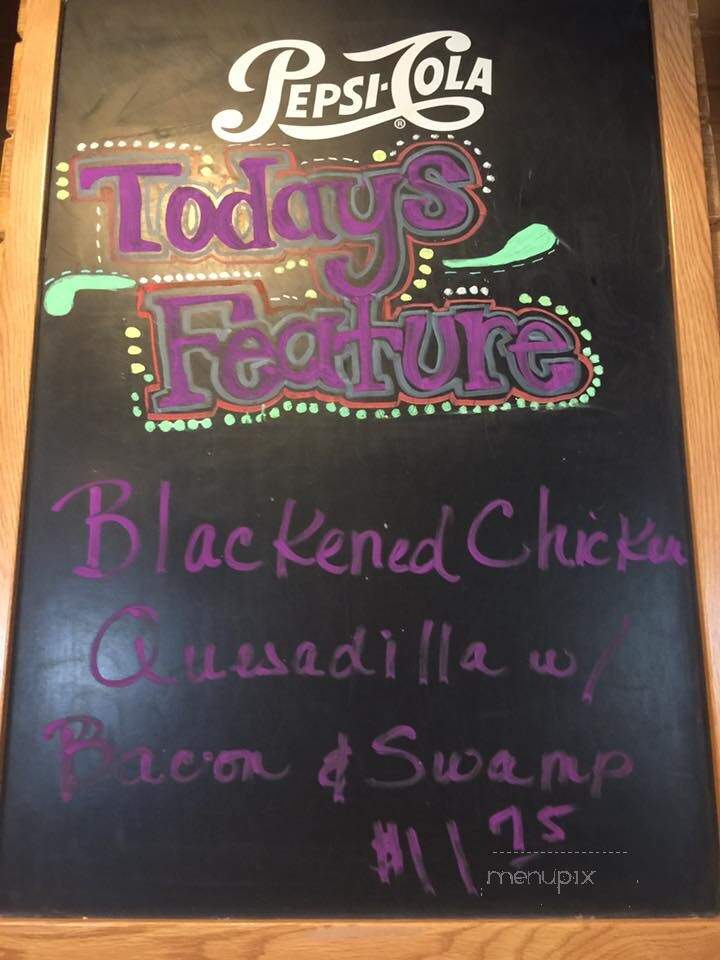 PEPSI-COLA ®
Todays
Feature
Blackened Chicken
Quesadilla w/
Bacon & Swamp
$11 75
menupix